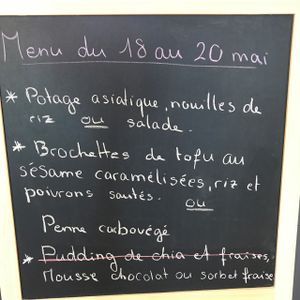 Menu du 18 au 20 mai
* Potage asiatique, nouilles de
riz ou salade.
* Brochettes de tofu au
sésame caramélisées, riz et
poivrons sautés. ou
Penne carbovégé
* Pudding de chia et fraises,
Mousse chocolat ou sorbet fraise